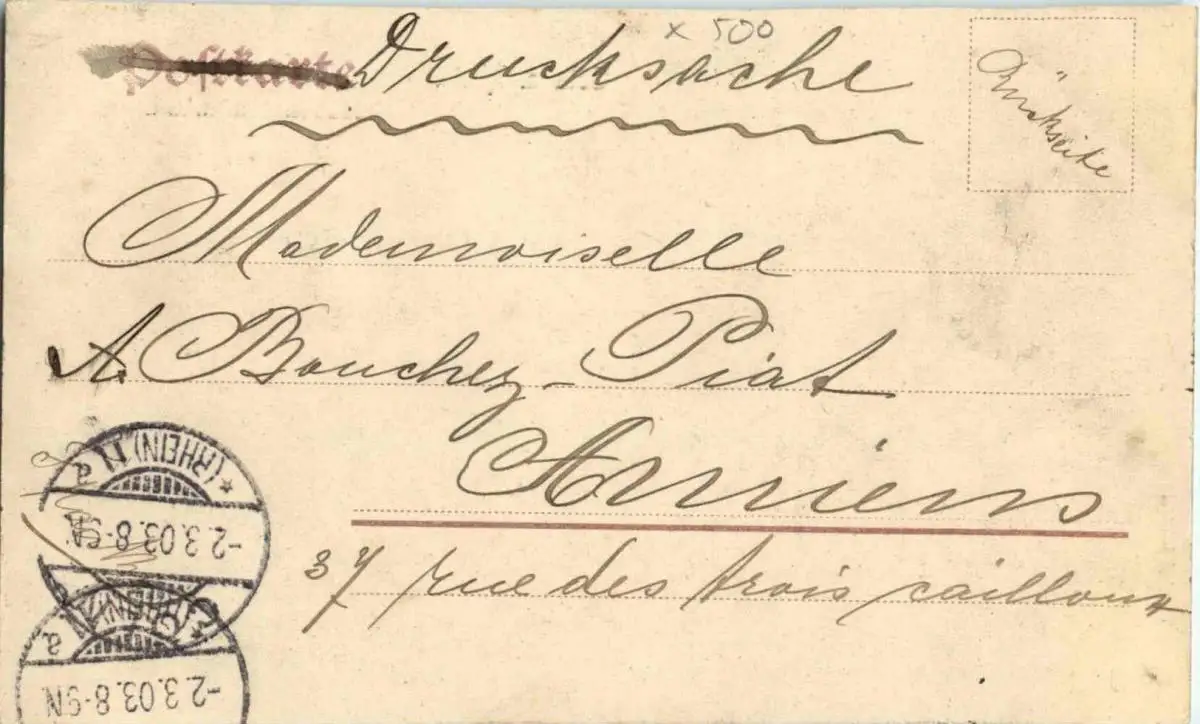 x 500
Postkarte Drucksache
Rückseite
Mademoiselle
A. Bouchez-Piat
Amiens
37 rue des trois cailloux
(RHEIN) 11
* a
-2.3.03.8-9N
(RHEIN) 11
* a
-2.3.03.8-9N